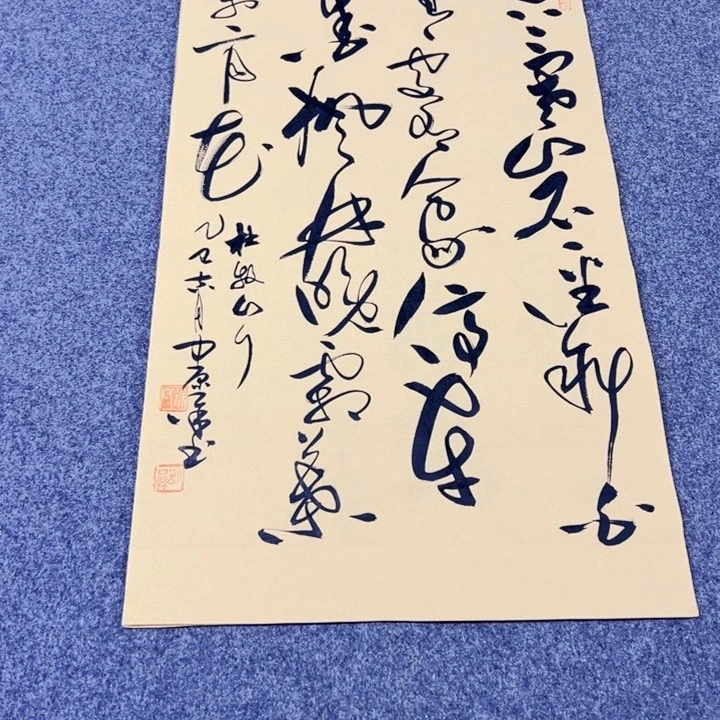 寒山石径斜白
处有人家停车
爱枫林晚霜叶
于二月花
杜牧山行
乙巳六月中原